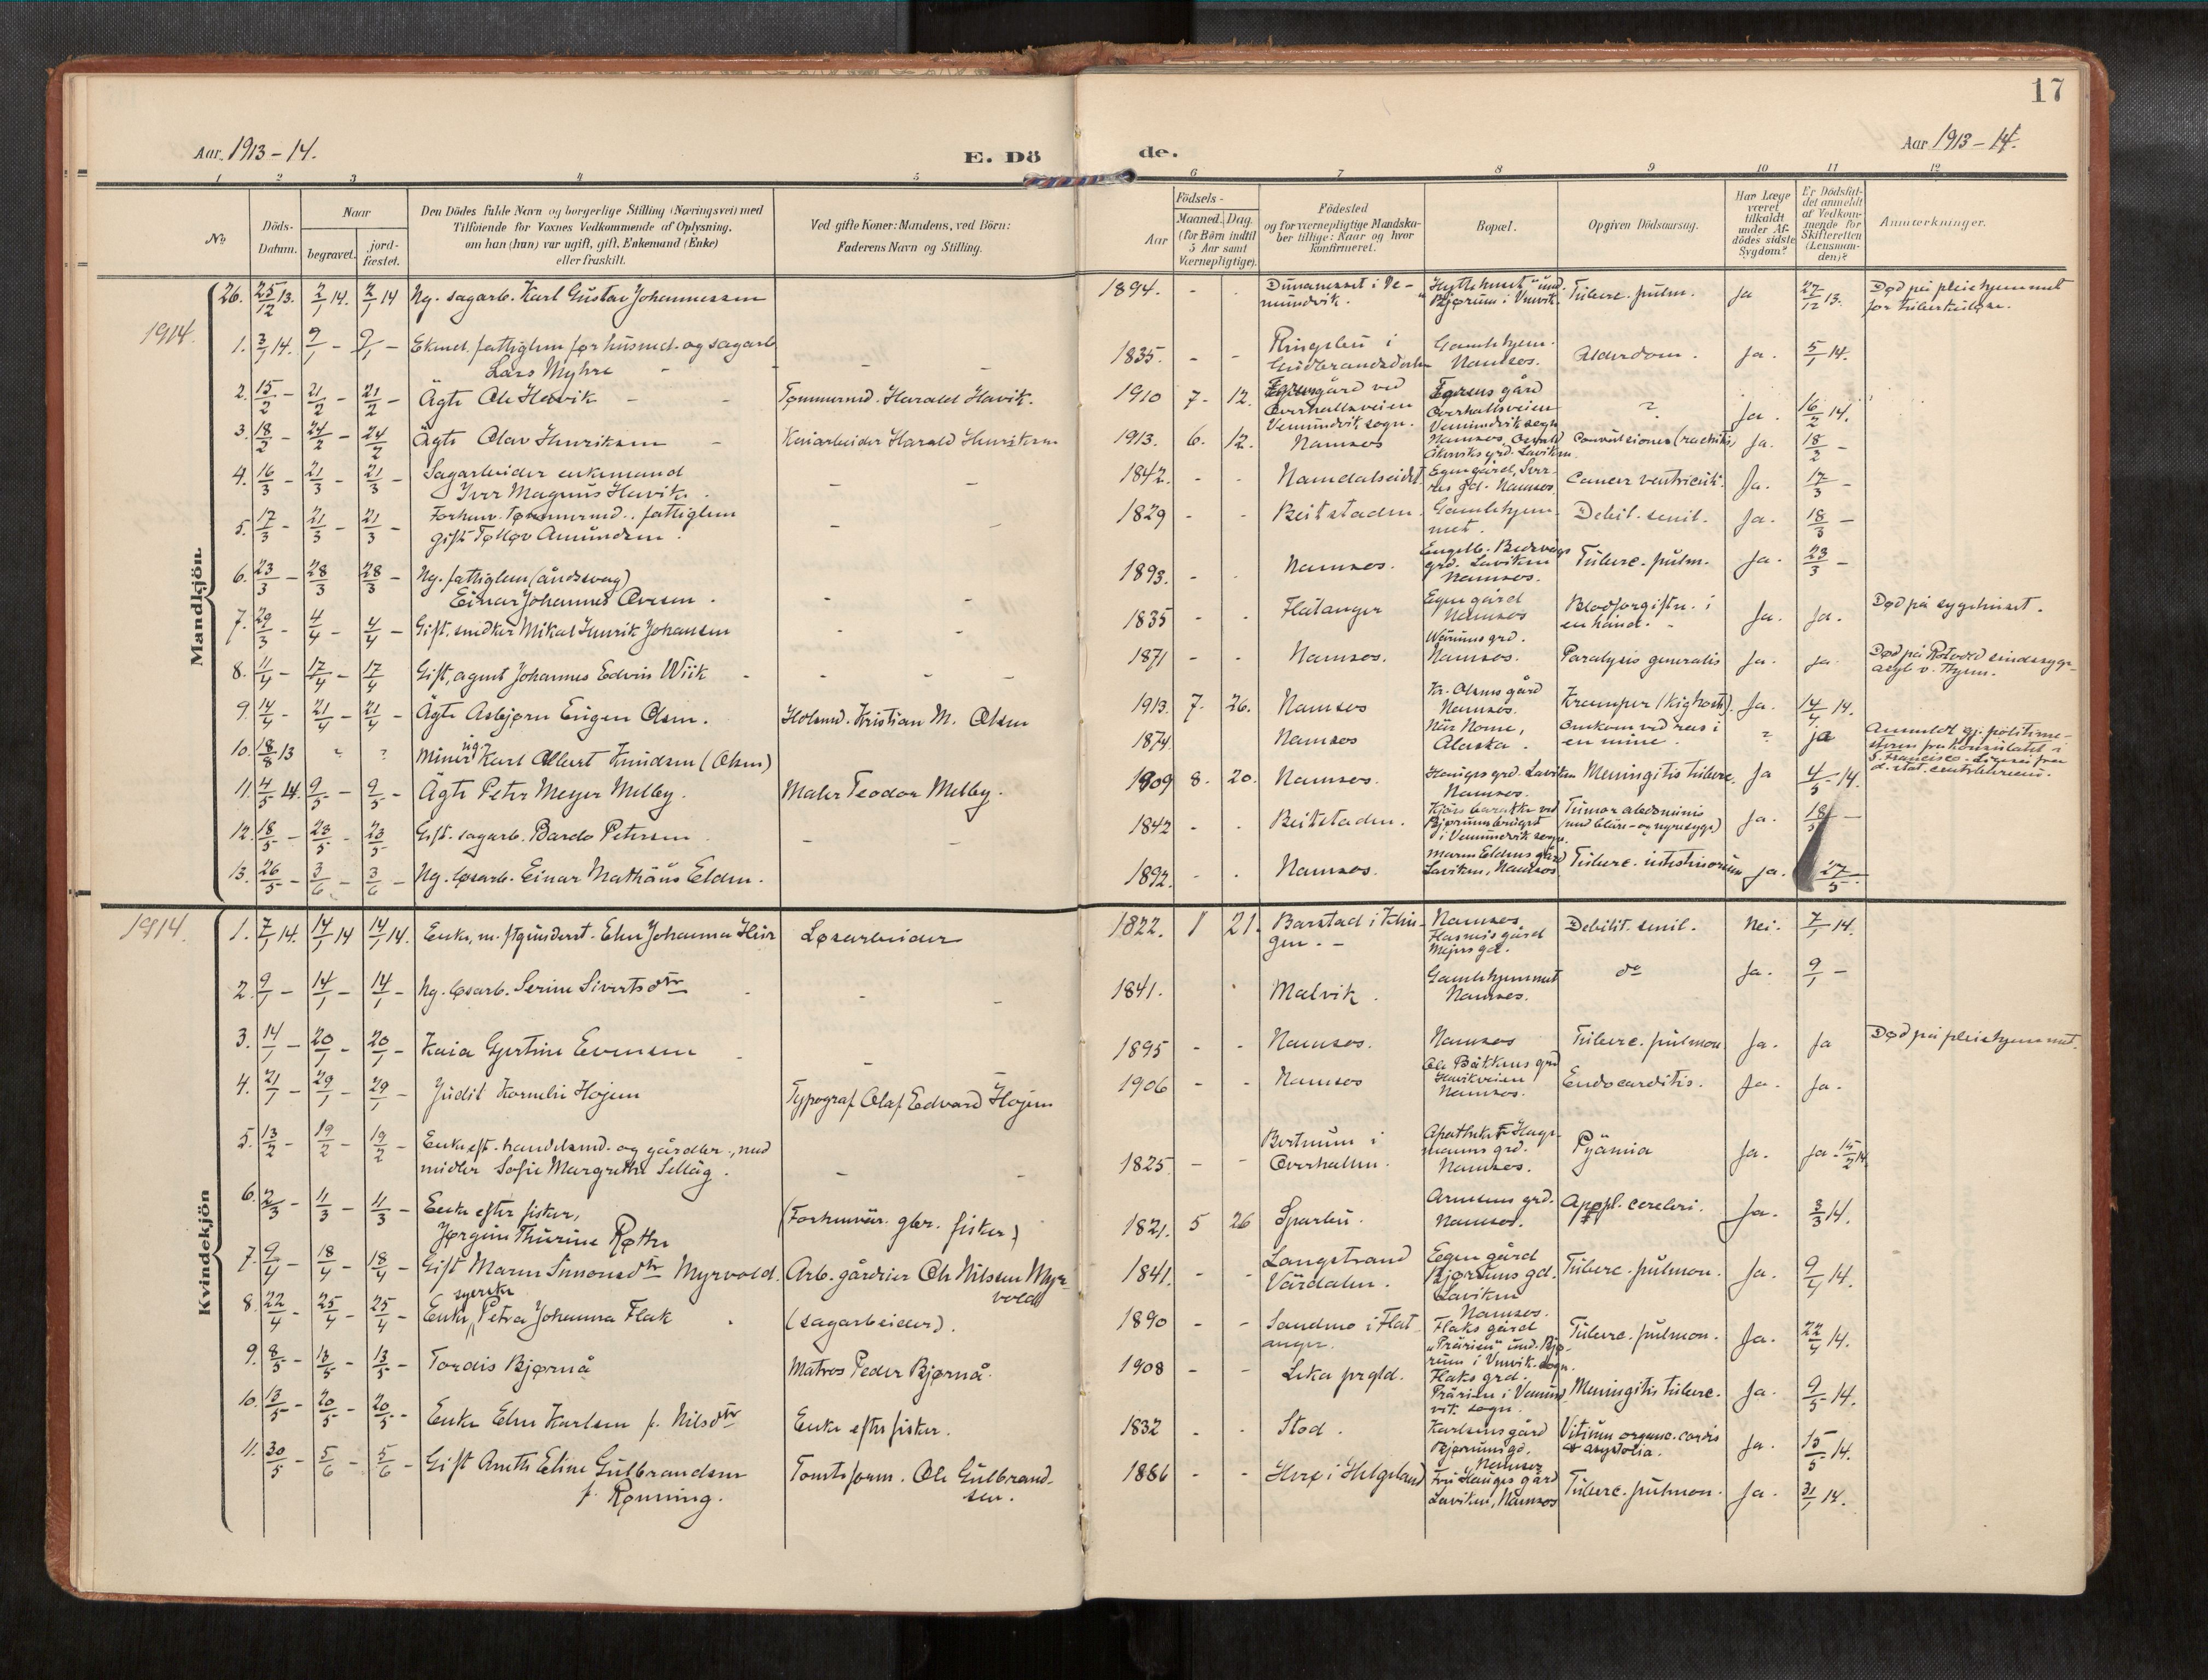 17
Aar 1913-14.
E. Dö
de.
Aar 1913-14.
1 2 3 4 5 6 7 8 9 10 11 12
No
Döds-Datum.
Naar
begravet.
jordfæstet.
Den Dödes fulde Navn og borgerlige Stilling (Næringsvei) med
Tilföiende for Voxnes Vedkommende af Oplysning,
om han (hun) var ugift, gift, Enkemand (Enke)
eller fraskilt.
Ved gifte Koner: Mandens, ved Börn:
Faderens Navn og Stilling.
Födsels-
Aar
Maaned. Dag.
(for Börn indtil
5 Aar samt
Værnepligtige).
Födested
og for værnepligtige Mandskaber tillige: Naar og hvor
konfirmeret.
Bopæl.
Opgiven Dödsaarsag.
Har Læge
været
tilkaldt
under Afdödes sidste
Sygdom?
Er Dödsfaldet anmeldt
af Vedkommende for
Skifteretten
(Lensmanden)?
Anmærkninger.
Mandkjön
26. 25/12 13. 2/1 14. 2/1 14 Ug. sagarb. Karl Gustav Johannessen 1894. - - Dunanesset i Vemundvik. "Hyttehuset" und. Bjørum i Vmvik. Tuberc. pulm. Ja 27/12 13. Død på pleiehjemmet for tuberkuløse.
1914.
1. 3/1 14. 9/1 - 9/1 - Ekmd. fattiglem før husmd. og sagarb. Lars Myhre - 1835. - - Ringebu i Gudbrandsdalen Gamlehjem. Namsos. Alderdom. Ja. 5/1 14.
2. 15/2 - 21/2 - 21/2 - Ägte Ole Havik - Tømmermd. Harald Havik. 1910 7. 12. gård ved Overhallsveien Vemundvik sogn. gård Overhallsveien Vemundvik sogn ? Ja. 16/2 14.
3. 18/2 - 24/2 - 24/2 Ägte Olav Henriksen - Kaiarbeider Harald Henriksen 1913. 6. 12. Namsos Namsos, grd. Laviken. Convulsiones (rachitis) Ja. 18/2 -
4. 16/3 - 21/3 - 21/3 - Sagarbeider enkemand Iver Magnus Havik. - 1842. - - Namdalseidet Egen gård, gd. Namsos Cancer ventriculi. Ja. 17/3 -
5. 17/3 - 21/3 - 21/3 - Forhenv. tømmermd. fattiglem gift Tollev Amundsen. - 1829 - - Beitstaden. Gamlehjemmet. Debil. senil. Ja. 18/3 -
6. 23/3 - 28/3 28/3 - Ug. fattiglem (åndssvag) Einar Johannes Ovesen. - 1893. - - Namsos. grd. Laviken Namsos. Tuberc. pulm. Ja. 23/3 -
7. 29/3 - 4/4 - 4/4 - Gift, snedker Mikal Henrik Johansen - 1835 - - Flatanger Egen gård Namsos Blodforgiftn. i en hånd. Ja. Ja. Død på sygehuset.
8. 11/4 - 17/4 - 17/4 Gift, agent Johannes Edvin Wiik - 1871 - - Namsos. grd. Namsos. Paralysis generalis Ja. Ja. Død på Rotvold sindssygeasyl v. Thjem.
9. 14/4 - 21/4 - 21/4 - Ägte Asbjørn Eugen Olsen. Kristian M. Olsen 1913. 7. 26. Namsos Kr. Olsens gård Namsos. Kramper (kighoste). Ja. 14/4 14.
10. 18/8 13 ? ? ug. Miner Karl Albert Knudsen (Olsen) 1874. Namsos När Nome, Alaska. Omkom ved ras i en mine. ? ja Anmeldt gj. politimesteren fra konsulatet i S. Francisco.
11. 4/5 14. 9/5 - 9/5 - Ägte Peter Meyer Melby. Maler Teodor Melby. 1909 8. 20. Namsos. Hauges grd. Laviken Namsos. Meningitis tuberc. Ja 4/5 14.
12. 18/5 - 23/5 - 23/5 Gift. sagarb. Bardo Petersen - 1842 - - Beitstaden. barakke ved Bjørumsbruget i Vemundvik sogn. Tumor abdominis (med blære- og nyresyge) Ja. 18/5 -
13. 26/5 - 3/6 - 3/6 - Ug. løsarb. Einar Mathäus Elden. 1892. - - Namsos. Maren Eldens gård Laviken, Namsos Tuberc. intestinorum Ja. 27/5
Kvindekjön
1914.
1. 7/1 14. 14/1 14 14/1 14. Enke, m. ftgunderst. Elen Johanna Løsarbeider 1822. 1 21. Barstad i Klingen. - Namsos gård gd. Debilit. senil. Nei. 7/1 14.
2. 9/1 - 14/1 - 14/1 - Ug. løsarb. Serine Sivertsdtr - 1841. Malvik. Gamlehjemmet Namsos. do Ja. 9/1 -
3. 14/1 - 20/1 - 20/1 - Kaia Gjertine Evensen - 1895 - - Namsos. Namsos Tuberc. pulmon. Ja. Ja Død på pleiehjemmet.
4. 21/1 - 29/1 - 29/1 - Judit Kornelie Højem Typograf Olaf Edvard Højem 1906 - - Namsos Ole Bakkens grd Havikveien Namsos. Endocarditis. Ja. Ja.
5. 13/2 - 19/2 - 19/2 - Enke eft. handelsmd. og gårdbr., med midler Sofie Margrethe Sellæg. - 1825 - - Bertnum i Overhallen. Apotheker grd. Namsos. Pyämia Ja. Ja. 15/2 14
6. 2/3 - 11/3 - 11/3 - Enke efter fisker, Jørgine Thurine Røthe (Forhenvär. gbr. fisker) 1821. 5 26 Sparbu. Arnesens grd. Namsos. Apopl. cerebri. Ja. 3/3 14.
7. 9/4 - 18/4 - 18/4 - Gift Maren Simonsdtr Myrvold. Arb. gårdeier Ole Nilssen Myrvold 1841. - - Langstrand Värdalen. Egen gård Bjørums gd. Laviken Namsos. Tuberc. pulmon. Ja. 9/4 14.
8. 22/4 - 25/4 - 25/4 - Enke, syerske Petra Johanna Flak (sagarbeider). 1890 - - Sandmo i Flatanger. Flaks gård "Prärien" und. Bjørum i Vmvik. sogn. Tuberc. pulmon. Ja. 22/4 14.
9. 8/5 - 13/5 - 13/5 - Tordis Bjørnå Matros Peder Bjørnå. 1908 - - Leka prgld. Flaks grd. Prärien i Vemundvik. sogn. Meningitis tuberc. Ja. 9/5 14.
10. 13/5 - 20/5 - 20/5 - Enke Elen Karlsen f. Nilsdtr Enke efter fisker. 1832 - - Stod. Karlsens gård Bjørums gd. Namsos Vitium organ. cordis & asystolia. Ja. 15/5 14.
11. 30/5 - 5/6 - 5/6 - Gift Aneth Eline Gulbrandsen f. Rønning. Tomteform. Ole Gulbrandsen. 1886 - - Herø i Helgeland Fru Hauges gård Laviken, Namsos Tuberc. pulmon. Ja. 31/ 14.